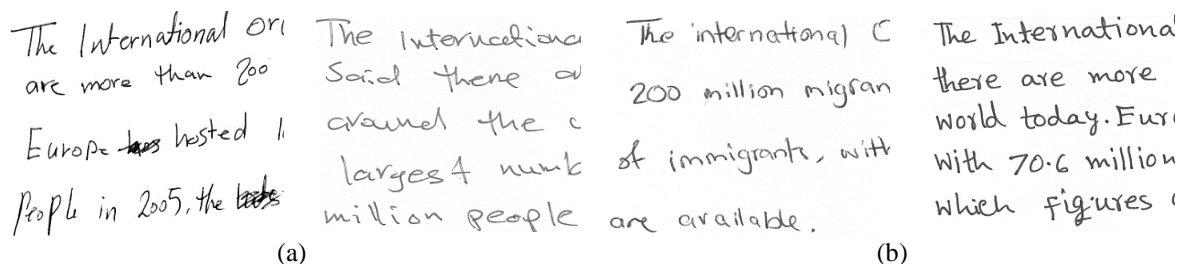 The International Ori
are more than 200
Europe hosted 1
People in 2005, the
The Internationa
Said there a
around the c
largest numb
million people
The international C
200 million migran
of immigrants, with
are available.
The Internationa
there are more
world today. Eur
With 70.6 million
which figures
(a)
(b)